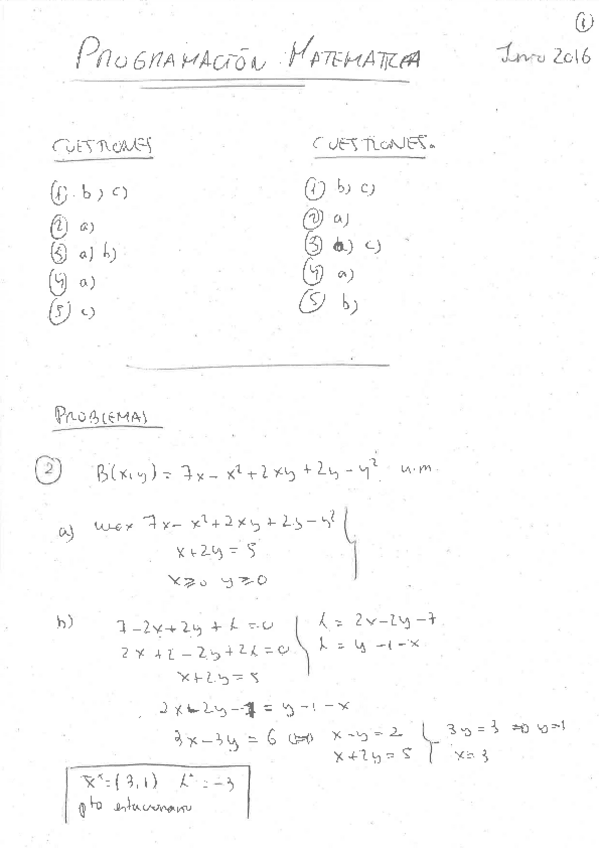 1
PROGRAMACIÓN MATEMATICA
2016
CUESTIONES
① b) c)
② a)
③ a) b)
④ a)
⑤ c)
CUESTIONES.
① b) c)
② a)
③ c)
④ a)
⑤ b)
PROBLEMAS
② B(x,y) = 7x - x² + 2xy + 2y - y² u.m.
a) max 7x - x² + 2xy + 2y - y²
x + 2y = 5
x ≥ 0 y ≥ 0
b) 7 - 2x + 2y + λ = 0
2x + 2 - 2y + 2λ = 0
x + 2y = 5
λ = 2x - 2y - 7
λ = y - 1 - x
2x - 2y - 7 = y - 1 - x
3x - 3y = 6 ⟺ x - y = 2
x + 2y = 5
3y = 3 ⇒ y = 1
x = 3
x* = (3, 1) λ* = -3
pto estacionario